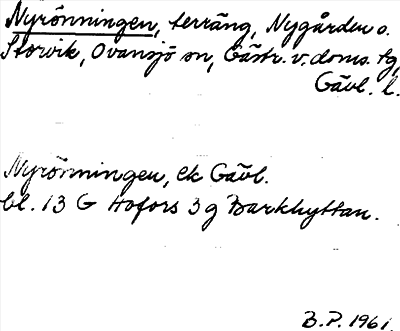 Nyrönningen, terräng, Nygården o.
Storvik, Ovansjö sn, Gästr. v. doms. tg,
Gävl. l.
Nyrönningen, ek Gävl.
bl. 13 G Hofors 3 g Barkhyttan.
B.P. 1961.